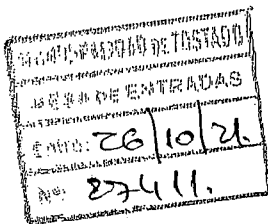 MUNICIPALIDAD DE TOSTADO
MESA DE ENTRADAS
Entró: 26/10/21.
Nº: 27411.